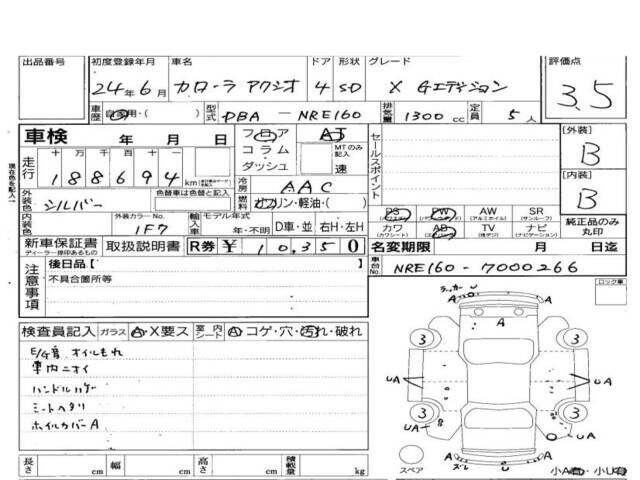 出品番号 初度登録年月 車名 ドア 形状 グレード 評価点
24年6月 カローラ アクシオ 4 SD X Gエディション 3.5
車歴 自家用・( ) 型式 DBA-NRE160 排気量 1300cc 定員 5人
車検 年 月 日 フロア AT セールスポイント [外装] B
コラム MTのみ記入
ダッシュ 速
走行 十万 千百十一
188694 km 冷房 AAC [内装] B
外装色 シルバー 色替車は色替と記入 燃料 ガソリン・軽油・( )
PS PW AW SR 純正品のみ丸印
(パワーウィンドウ) (アルミホイル) (サンルーフ)
内装色 外装カラーNo. 1F7 輸入車 モデル年式 年・不明 D車・並 右H・左H
カワ AB TV ナビ
(カワシート) (エアバッグ) (ナビゲーション)
新車保証書 取扱説明書 R券 ¥10,350 名変期限 月 日迄
ディーラー捺印あるもの
注意事項 後日品【 】 車台No. NRE160-7000266
不具合箇所等 ロック車
検査員記入 ガラス A・X要ス 室内シート A・コゲ・穴・汚れ・破れ
E/G音 オイルもれ
車内ニオイ
ハンドルハゲ
シートヘタリ
ホイルカバーA
A
A U
3 3
UA UA
3 3
UA U
A
スペア
長さ cm 幅 cm 高さ cm 積載量 kg 小A有・小U有